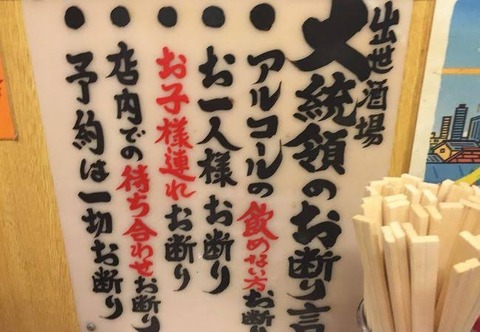 出世酒場
大統領のお断り言
●アルコールの飲めない方お断り
●お一人様お断り
●お子様連れお断り
●店内での待ち合わせお断り
●予約は一切お断り